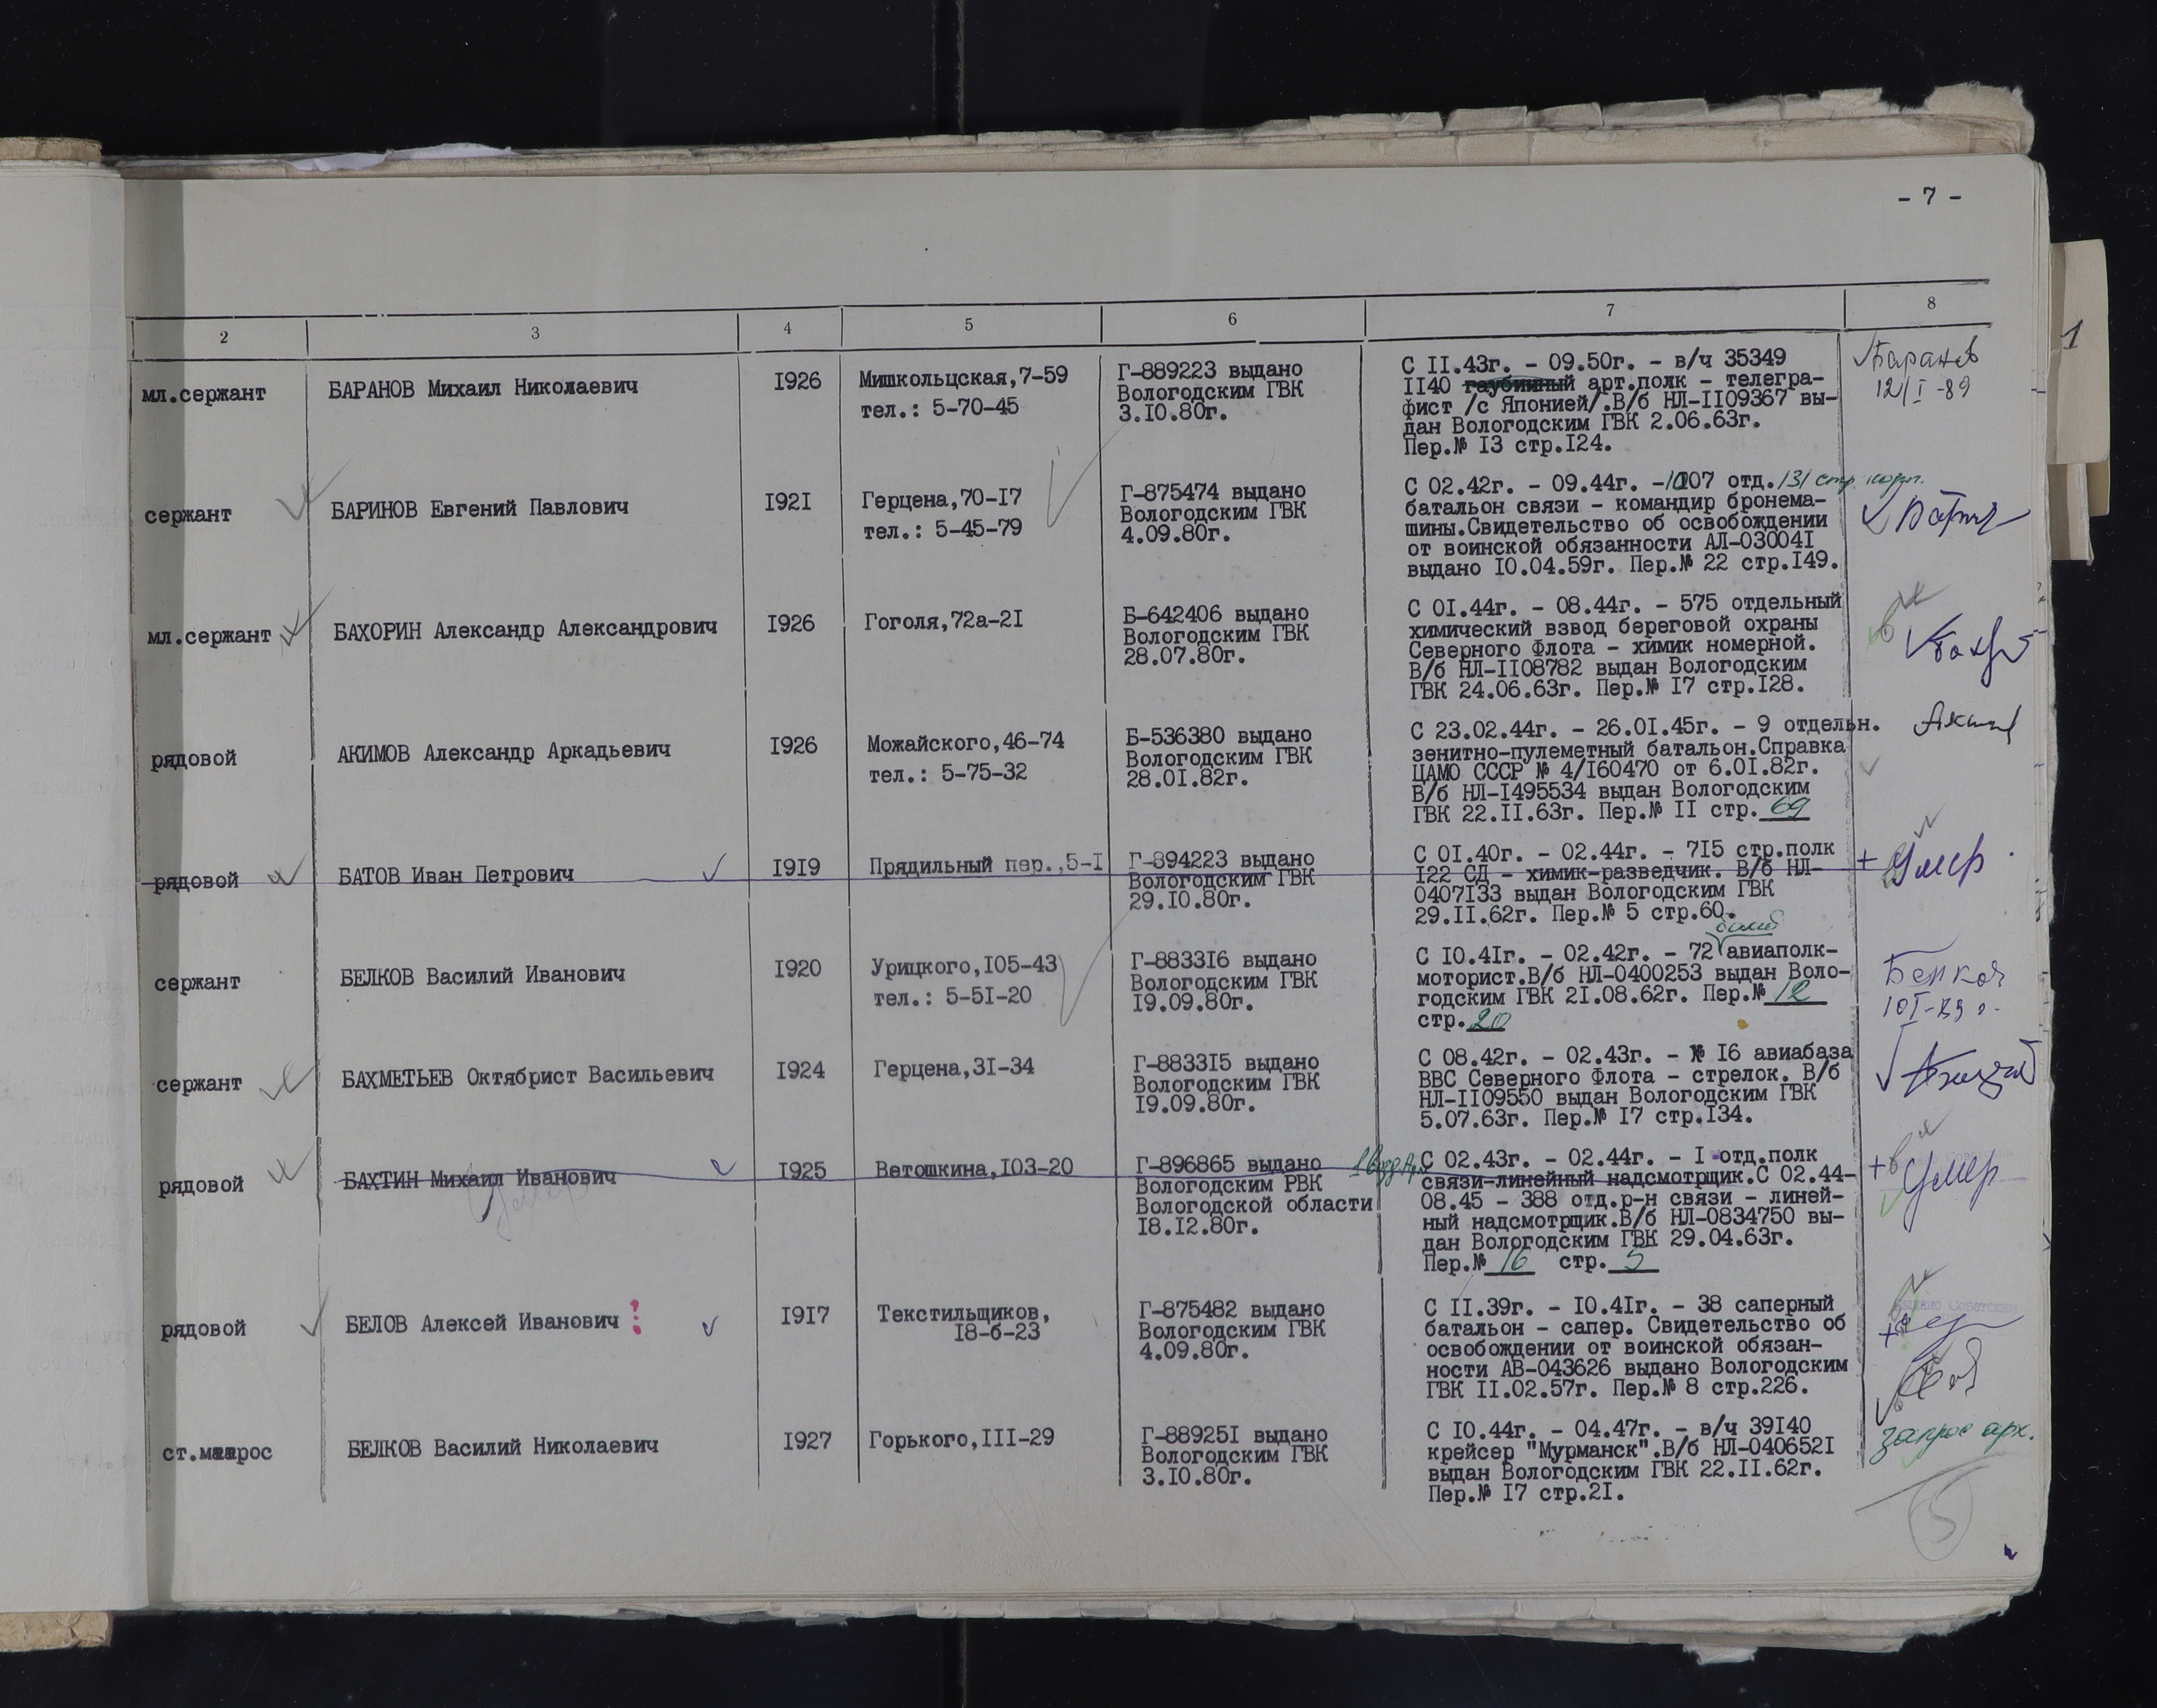 - 7 -
2 3 4 5 6 7 8
мл.сержант БАРАНОВ Михаил Николаевич I926 Мишкольцская,7-59
тел.: 5-70-45
Г-889223 выдано
Вологодским ГВК
3.I0.80г.
С II.43г. - 09.50г. - в/ч 35349
II40 гаубичный арт.полк - телегра-
фист /с Японией/.В/б НЛ-II09367 вы-
дан Вологодским ГВК 2.06.63г.
Пер.№ I3 стр.I24.
Баранов
12/I-89
сержант БАРИНОВ Евгений Павлович I92I Герцена,70-I7
тел.: 5-45-79
Г-875474 выдано
Вологодским ГВК
4.09.80г.
С 02.42г. - 09.44г. - 1007 отд. 131 стр. корп.
батальон связи - командир бронема-
шины.Свидетельство об освобождении
от воинской обязанности АЛ-03004I
выдано I0.04.59г. Пер.№ 22 стр.I49.
мл.сержант БАХОРИН Александр Александрович I926 Гоголя,72а-2I
Б-642406 выдано
Вологодским ГВК
28.07.80г.
С 0I.44г. - 08.44г. - 575 отдельный
химический взвод береговой охраны
Северного Флота - химик номерной.
В/б НЛ-II08782 выдан Вологодским
ГВК 24.06.63г. Пер.№ I7 стр.I28.
рядовой АКИМОВ Александр Аркадьевич I926 Можайского,46-74
тел.: 5-75-32
Б-536380 выдано
Вологодским ГВК
28.0I.82г.
С 23.02.44г. - 26.0I.45г. - 9 отдельн.
зенитно-пулеметный батальон.Справка
ЦАМО СССР № 4/I60470 от 6.0I.82г.
В/б НЛ-I495534 выдан Вологодским
ГВК 22.II.63г. Пер.№ II стр. 69
рядовой БАТОВ Иван Петрович I9I9 Прядильный пер.,5-I
Г-894223 выдано
Вологодским ГВК
29.I0.80г.
С 0I.40г. - 02.44г. - 7I5 стр.полк
I22 СД - химик-разведчик. В/б НЛ-
0407I33 выдан Вологодским ГВК
29.II.62г. Пер.№ 5 стр.60.
+ Умер
сержант БЕЛКОВ Василий Иванович I920 Урицкого,I05-43
тел.: 5-5I-20
Г-8833I6 выдано
Вологодским ГВК
I9.09.80г.
С I0.4Iг. - 02.42г. - 72 авиаполк-
моторист.В/б НЛ-0400253 выдан Воло-
годским ГВК 2I.08.62г. Пер.№ 12
стр. 20
сержант БАХМЕТЬЕВ Октябрист Васильевич I924 Герцена,3I-34
Г-8833I5 выдано
Вологодским ГВК
I9.09.80г.
С 08.42г. - 02.43г. - № I6 авиабаза
ВВС Северного Флота - стрелок. В/б
НЛ-II09550 выдан Вологодским ГВК
5.07.63г. Пер.№ I7 стр.I34.
рядовой БАХТИН Михаил Иванович I925 Ветошкина,I03-20
Умер
Г-896865 выдано
Вологодским РВК
Вологодской области
I8.I2.80г.
С 02.43г. - 02.44г. - I отд.полк
связи-линейный надсмотрщик.С 02.44-
08.45 - 388 отд.р-н связи - линей-
ный надсмотрщик.В/б НЛ-0834750 вы-
дан Вологодским ГВК 29.04.63г.
Пер.№ 16 стр. 5
+ Умер
рядовой БЕЛОВ Алексей Иванович I9I7 Текстильщиков,
I8-б-23
Г-875482 выдано
Вологодским ГВК
4.09.80г.
С II.39г. - I0.4Iг. - 38 саперный
батальон - сапер. Свидетельство об
освобождении от воинской обязан-
ности АВ-043626 выдано Вологодским
ГВК II.02.57г. Пер.№ 8 стр.226.
ст.матрос БЕЛКОВ Василий Николаевич I927 Горького,III-29
Г-88925I выдано
Вологодским ГВК
3.I0.80г.
С I0.44г. - 04.47г. - в/ч 39I40
крейсер "Мурманск".В/б НЛ-040652I
выдан Вологодским ГВК 22.II.62г.
Пер.№ I7 стр.2I.
запрос арх.
5
1